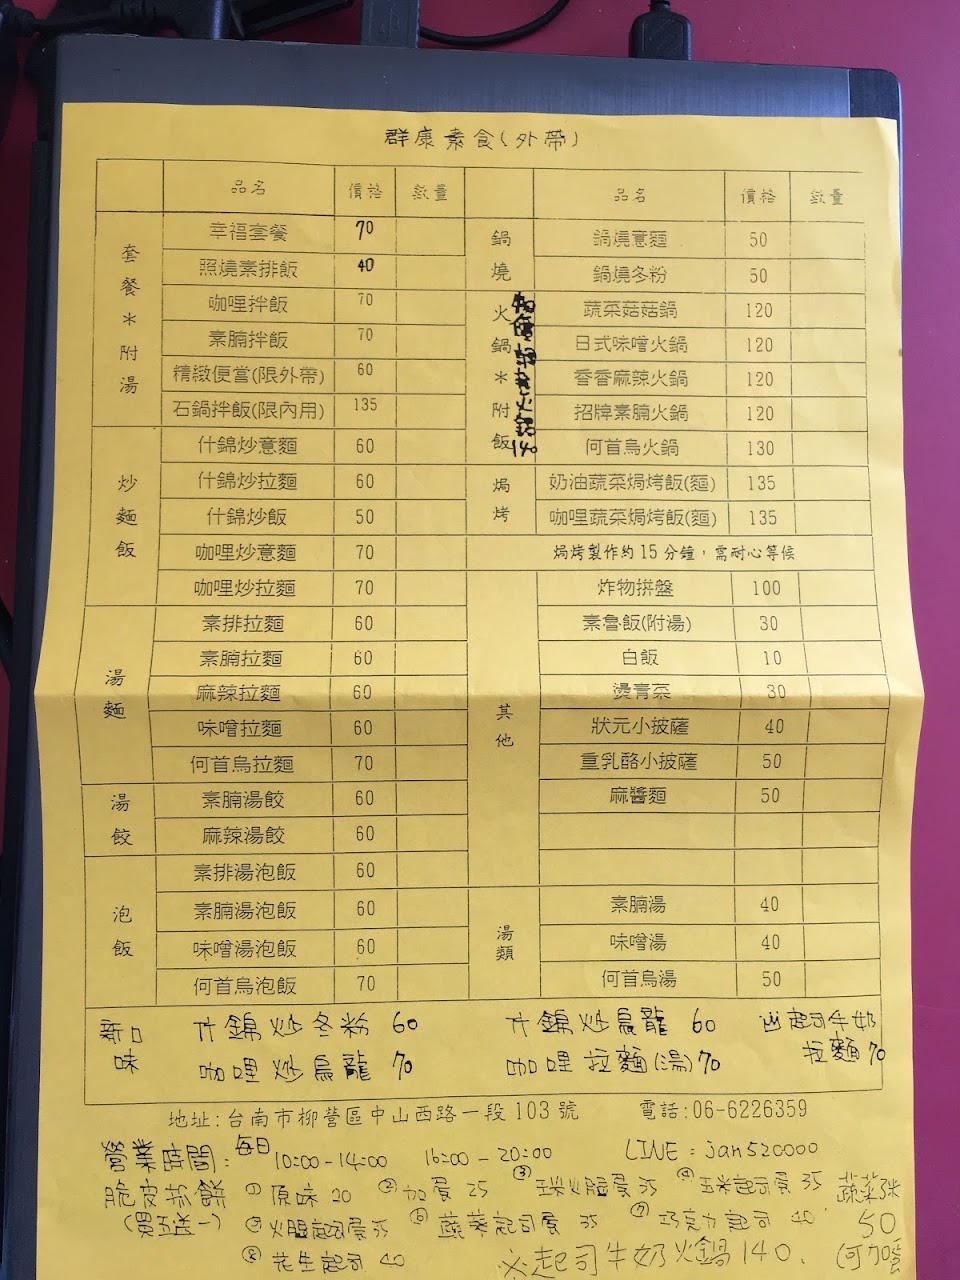 群康素食(外帶)
品名 價格 數量 品名 價格 數量
套餐＊附湯
幸福套餐 70
照燒素排飯 40
咖哩拌飯 70
素腩拌飯 70
精緻便當(限外帶) 60
石鍋拌飯(限內用) 135
炒麵飯
什錦炒意麵 60
什錦炒拉麵 60
什錦炒飯 50
咖哩炒意麵 70
咖哩炒拉麵 70
湯麵
素排拉麵 60
素腩拉麵 60
麻辣拉麵 60
味噌拉麵 60
何首烏拉麵 70
湯餃
素腩湯餃 60
麻辣湯餃 60
泡飯
素排湯泡飯 60
素腩湯泡飯 60
味噌湯泡飯 60
何首烏湯泡飯 70
鍋燒
鍋燒意麵 50
鍋燒冬粉 50
火鍋＊附飯
火鍋140
蔬菜菇菇鍋 120
日式味噌火鍋 120
香香麻辣火鍋 120
招牌素腩火鍋 120
何首烏火鍋 130
焗烤
奶油蔬菜焗烤飯(麵) 135
咖哩蔬菜焗烤飯(麵) 135
焗烤製作約15分鐘，需耐心等候
其他
炸物拼盤 100
素魯飯(附湯) 30
白飯 10
燙青菜 30
狀元小披薩 40
重乳酪小披薩 50
麻醬麵 50
湯類
素腩湯 40
味噌湯 40
何首烏湯 50
新口味
什錦炒冬粉 60 什錦炒烏龍 60 起司牛奶
咖哩炒烏龍 70 咖哩拉麵(湯)70 拉麵70
地址:台南市柳營區中山西路一段103號 電話:06-6226359
營業時間:每日 10:00-14:00 16:00-20:00 LINE:jan520000
脆皮抓餅 ①原味20 ②加蛋25 ③玉米火腿蛋35 ④玉米起司蛋35
(買五送一) ⑤火腿起司蛋35 ⑥蔬菜起司蛋35 ⑦巧克力起司40
⑧花生起司40
※起司牛奶火鍋140.
50